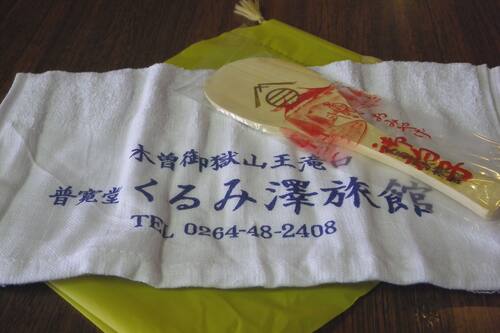 木曽御嶽山王滝口
普寛堂 くるみ澤旅館
TEL 0264-48-2408
おみやげ